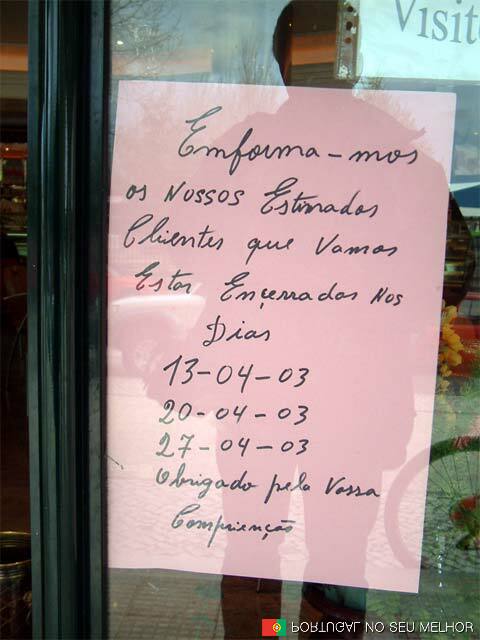 Visit
Emforma-mos
os Nossos Estimados
Clientes que Vamos
Estar Ençerrados Nos
Dias
13-04-03
20-04-03
27-04-03
Obrigado pela Vossa
Comprienção
PORTUGAL NO SEU MELHOR